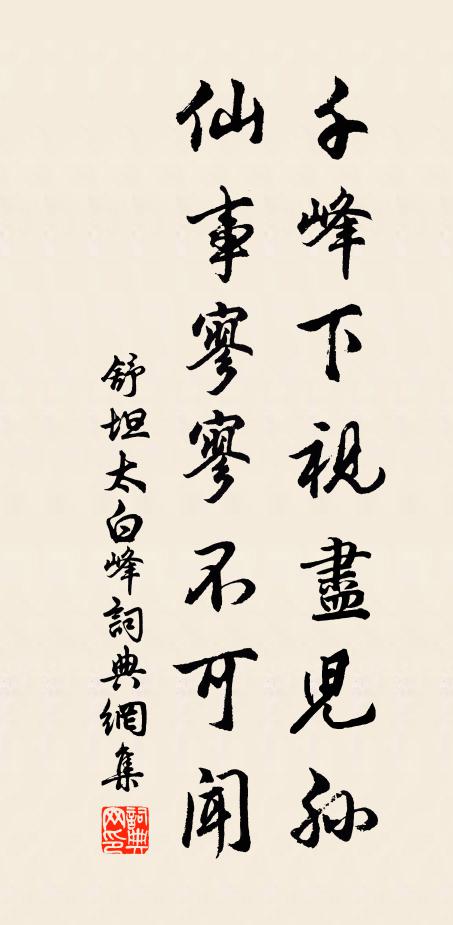 千峰下視盡児孫
仙事寥寥不可聞
舒坦太白峰詞典網集
詞典
网印